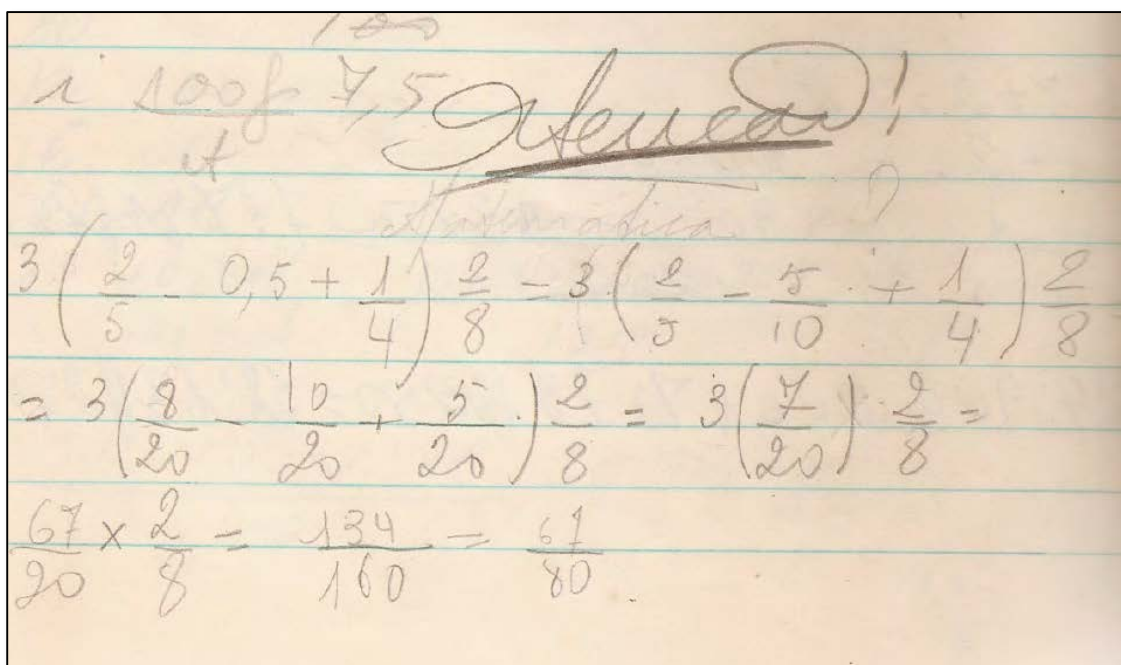 100
1 100f 7,5 Atenção!
it
Matemática
3 ( 2/5 - 0,5 + 1/4 ) 2/8 = 3 ( 2/5 - 5/10 + 1/4 ) 2/8
= 3 ( 8/20 - 10/20 + 5/20 ) 2/8 = 3 ( 7/20 ) × 2/8 =
67/20 × 2/8 = 134/160 = 67/80.